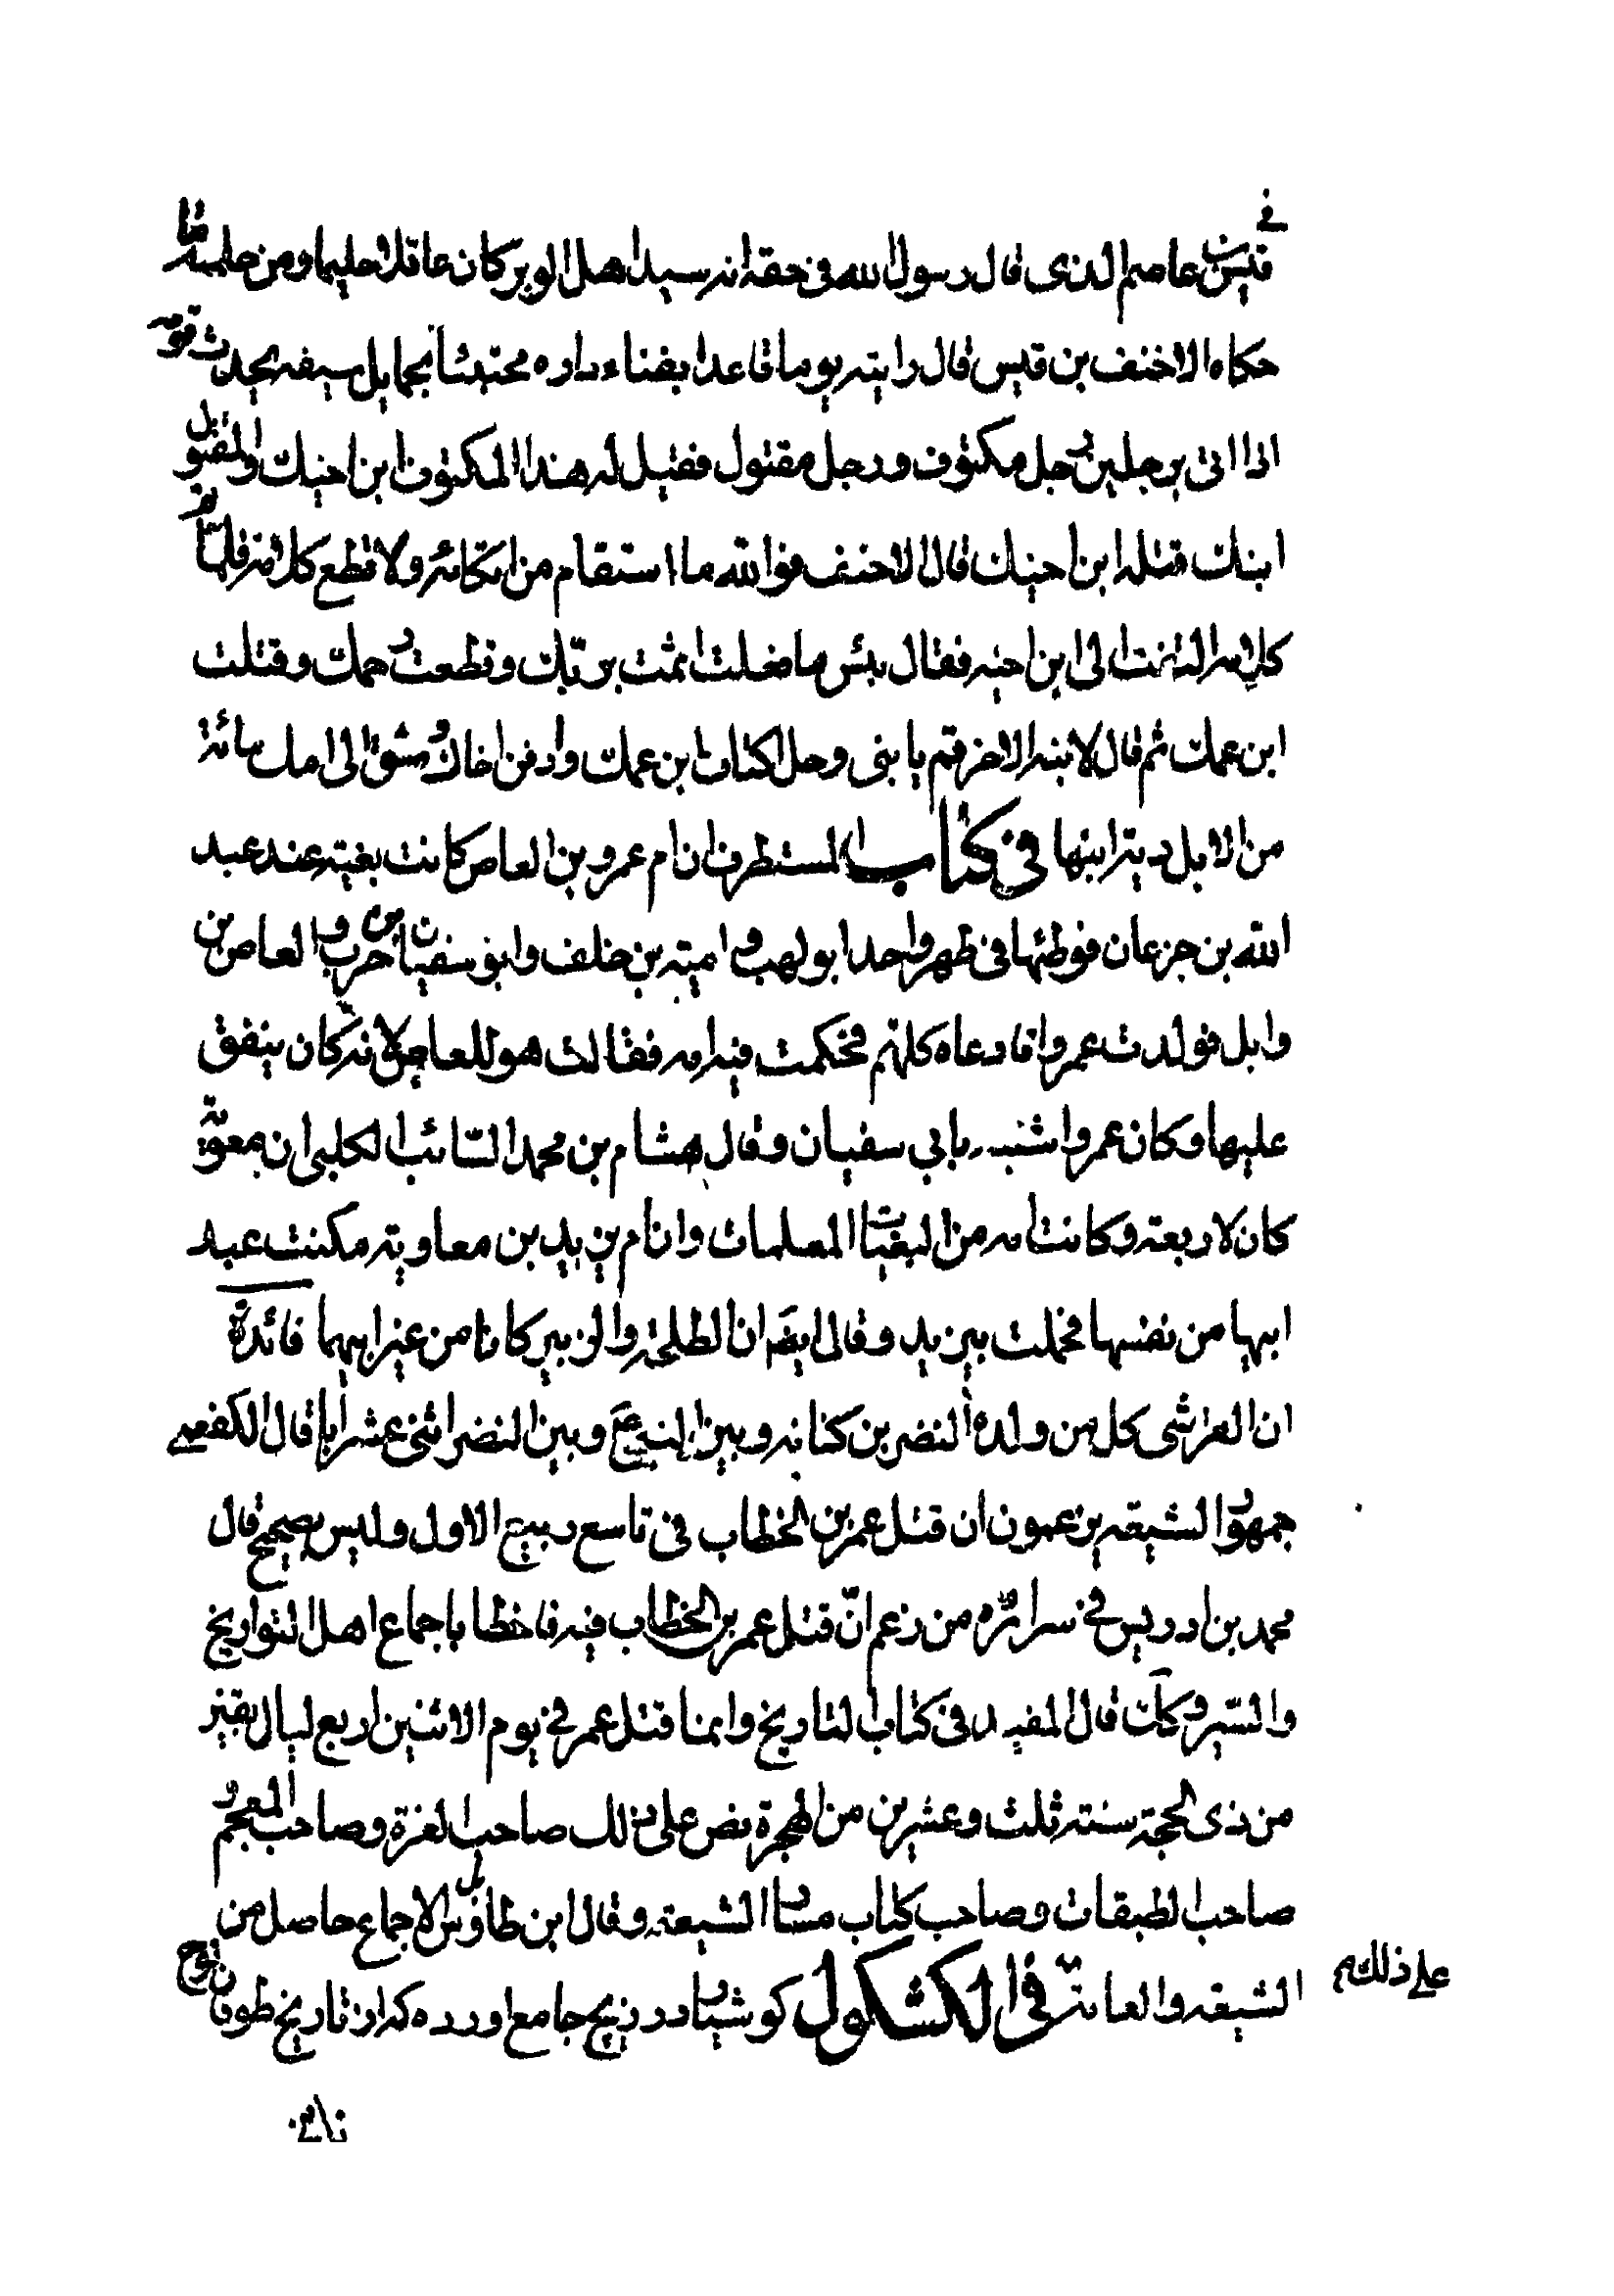 في قيس بن عاصم الذى قال رسول الله فى حقه انه سيد اهل الوبر كان عاقلا حليما ومن حلمه ما
حكاه الاخنف بن قيس قال رايته يوما قاعدا بفناء داره محتبئا بحمايل سيفه يحدث قومه
اذا اتى برجلين رجل مكتوف ورجل مقتول فقيل له هذا المكتوف ابن اخيك والمقتول
ابنك قتله ابن اخيك قال الاخنف فوالله ما استقام من اتكائه ولا قطع كلامه فلما تم
كلامه التفت الى ابن اخيه فقال بئس ما فعلت اثمت بربّك وقطعت رحمك وقتلت
ابن عمك ثم قال لابنه الاخر قم يا بنى وحل اكتاف ابن عمك وادفن اخاك وسق الى امك مائة
من الابل دية ابنها في كتاب المستطرف ان ام عمرو بن العاص كانت بغيته عند عبد
الله بن جزعان فوطئها فى طهر واحد ابو لهب و اميته بن خلف وابو سفيان بن حرب و العاص بن
وابل فولدت عمروا فادعاه كلهم فحكمت فيه امه فقالت هو للعاص لانه كان ينفق
عليها وكان عمروا شبه بابي سفيان وقال هشام بن محمد السّائب الكلبى ان معوية
كان لاربعة وكانت امه من البغيات المعلمات وان ام يزيد بن معاوية مكنت عبد
ابيها من نفسها فحملت بيزيد وقال ايضَم ان الطلحة والزبير كانا من غير ابيهما فائدة
ان القرشى كل من ولده النضر بن كنانه وبين النبي ع وبين النضر اثنى عشر ابا قال الكفعمي
جمهور الشيعة يزعمون ان قتل عمر بن الخطاب فى تاسع ربيع الاول وليس بصحيح قال
محمد بن ادريس في سرائره من زعم انّ قتل عمر بن الخطاب فيه فاخطا باجماع اهل التواريخ
والسّير وكك قال المفيد فى كتاب التاريخ وانما قتل عمر في يوم الاثنين اربع ليال بقين
من ذى الحجة سنته ثلث وعشرين من الهجرة نص على ذلك صاحب الغرة وصاحب المعجم و
صاحب الطبقات وصاحب كتاب مسار الشيعة وقال ابن طاوس بل الاجماع حاصل من
الشيعه والعامّة في الكشكول كوشيار در زيج جامع اورده كه از تاريخ طوفان نوح
على ذلك